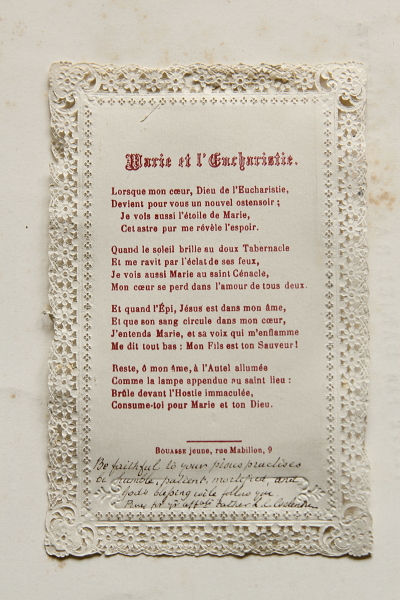 Marie et l'Eucharistie.
Lorsque mon cœur, Dieu de l'Eucharistie,
Devient pour vous un nouvel ostensoir ;
Je vois aussi l'étoile de Marie,
Cet astre pur me révèle l'espoir.
Quand le soleil brille au doux Tabernacle
Et me ravit par l'éclat de ses feux,
Je vois aussi Marie au saint Cénacle,
Mon cœur se perd dans l'amour de tous deux.
Et quand l'Épi, Jésus est dans mon âme,
Et que son sang circule dans mon cœur,
J'entends Marie, et sa voix qui m'enflamme
Me dit tout bas : Mon Fils est ton Sauveur !
Reste, ô mon âme, à l'Autel allumée
Comme la lampe appendue au saint lieu :
Brûle devant l'Hostie immaculée,
Consume-toi pour Marie et ton Dieu.
BOUASSE jeune, rue Mabillon, 9
Be faithful to your pious practises
humble, patient, mortified, and
God's blessing will follow you.
Pray for yr aff Father